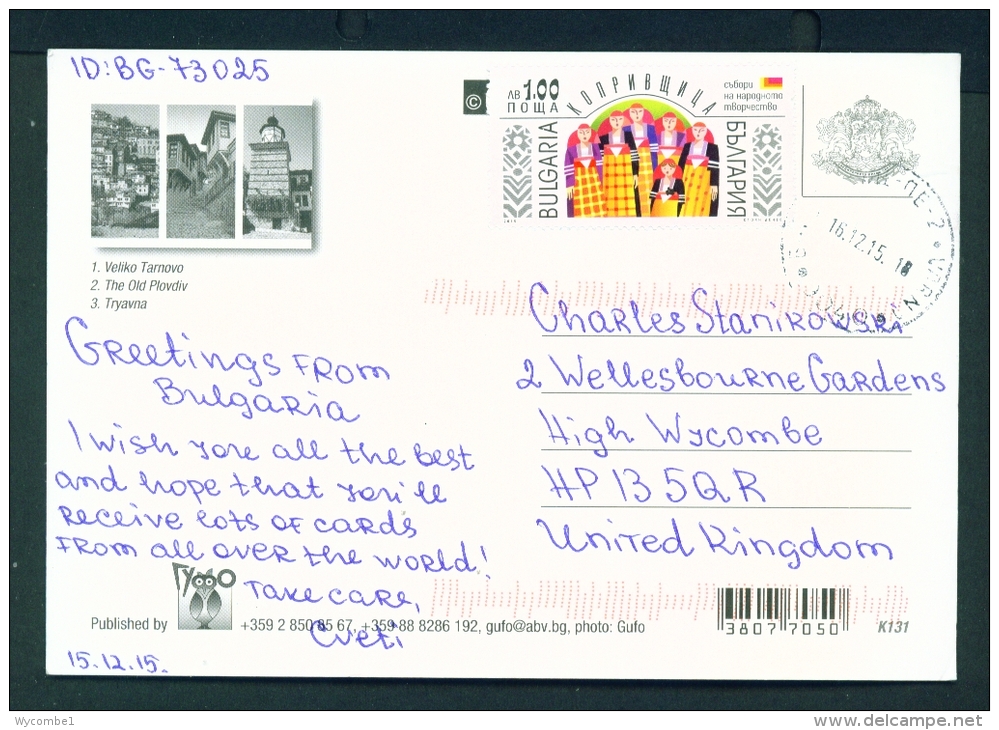 ID:BG-73025
© ЛВ 1.00
ПОЩА
КОПРИВЩИЦА
събори
на народното
творчество
BULGARIA
БЪЛГАРИЯ
16.12.15. 18
1. Veliko Tarnovo
2. The Old Plovdiv
3. Tryavna
Charles Stanikowski
2 Wellesbourne Gardens
High Wycombe
HP13 5QR
United Kingdom
Greetings from
Bulgaria
I wish you all the best
and hope that you'll
receive lots of cards
from all over the world!
Take care,
Cveti
ГУФО
Published by +359 2 850 85 67, +359 88 8286 192, gufo@abv.bg, photo: Gufo
3807 7050
K131
15.12.15.
Wycombe1
www.delcampe.net